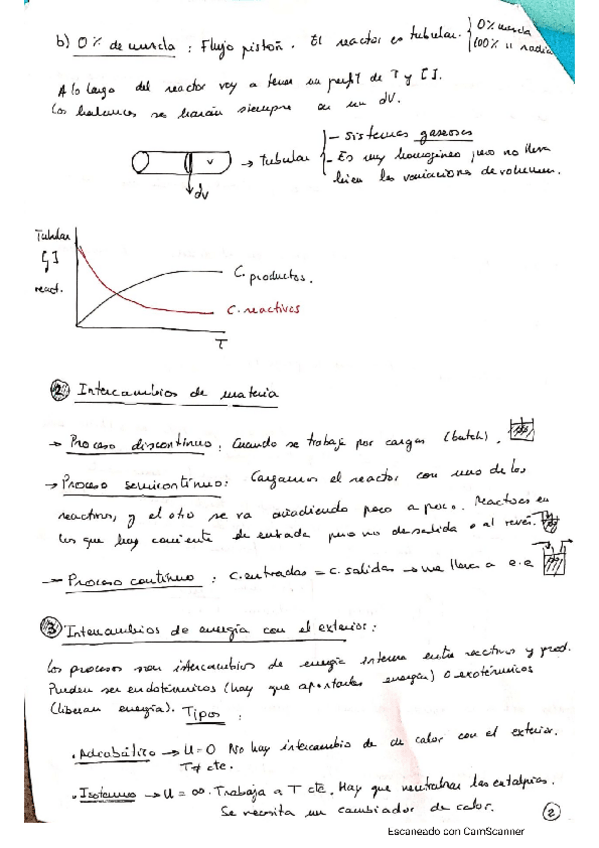 b) 0% de mezcla : Flujo pistón. El reactor es tubular. { 0% mezcla
100% " radial
A lo largo del reactor voy a tener un perfil de T y [ ].
Los balances se harán siempre en un dV.
V → tubular { - Sistemas gaseosos
- Es muy homogéneo pero no lleva
bien las variaciones de volumen.
dV
Tubular
[ ]
react.
C. productos.
C. reactivos
T
② Intercambios de materia
→ Proceso discontinuo: Cuando se trabaja por cargas (batch).
→ Proceso semicontinuo: Cargamos el reactor con uno de los
reactivos, y el otro se va añadiendo poco a poco. Reactores en
los que hay corriente de entrada pero no de salida o al revés.
→ Proceso continuo : C. entradas = C. salidas → me lleva a e.e
③ Intercambios de energía con el exterior:
Los procesos son intercambios de energía interna entre reactivos y prod.
Pueden ser endotérmicos (hay que aportarles energía) o exotérmicos
(liberan energía). Tipos :
· Adiabático → U=0 No hay intercambio de de calor con el exterior.
T≠ cte.
· Isotermo → U = ∞. Trabaja a T cte. Hay que neutralizar las entalpías.
Se necesita un cambiador de calor.
②
Escaneado con CamScanner